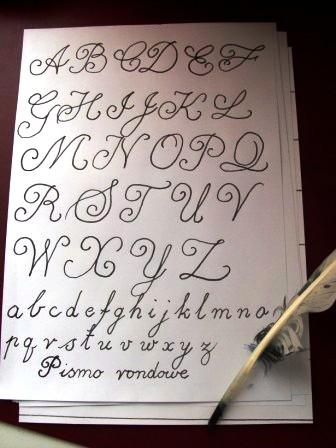 A B C D E F
G H I J K L
M N O P Q
R S T U V
W X Y Z
a b c d e f g h i j k l m n o
p q r s t u v w x y z
Pismo rondowe